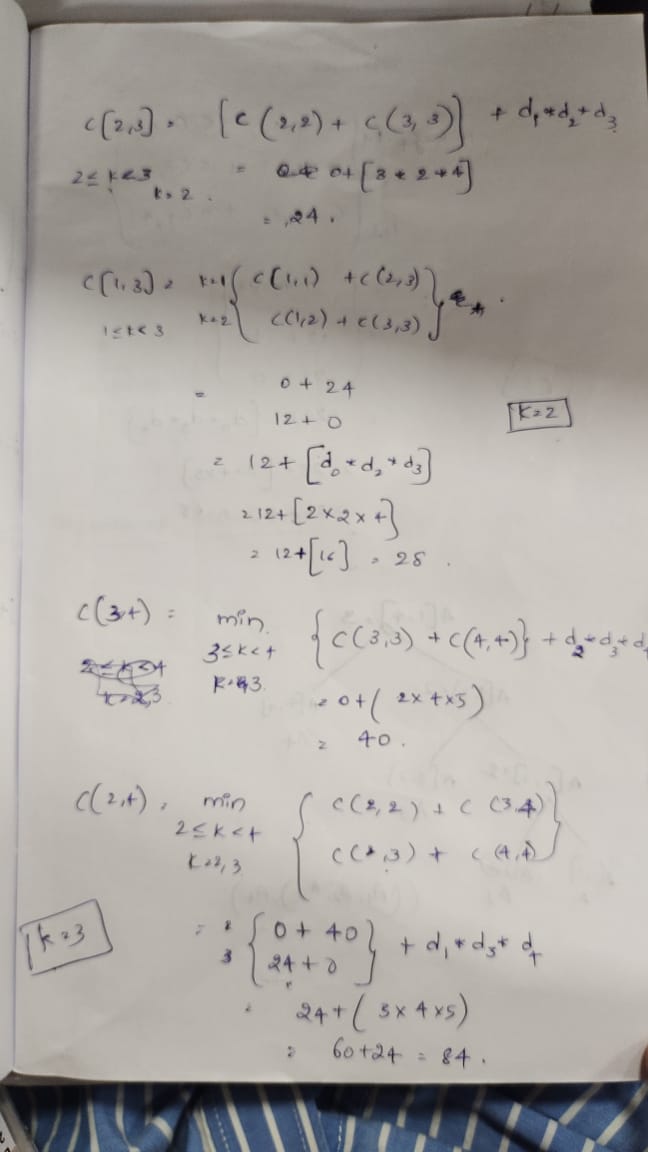 C[2,3] = [C(2,2) + C(3,3)] + d1*d2*d3
2≤k<3 = 0+[3*2*4]
k=2.
= 24.
C[1,3] = k=1 { C(1,1) + C(2,3) }
1≤k<3 k=2 { C(1,2) + C(3,3) }
= 0 + 24
12 + 0 k=2
= 12 + [d0*d2*d3]
= 12 + [2×2×4]
= 12+[16] = 28.
C(3,4) = min {C(3,3) + C(4,4)} + d2*d3*d4
3≤k<4
k=3
= 0+(2×4×5)
= 40.
C(2,4) = min { C(2,2) + C(3,4) }
2≤k<4
k=2,3 { C(2,3) + C(4,4) }
k=3 = 2 { 0 + 40 } + d1*d3*d4
3 { 24 + 0 }
= 24+(3×4×5)
= 60+24 = 84.